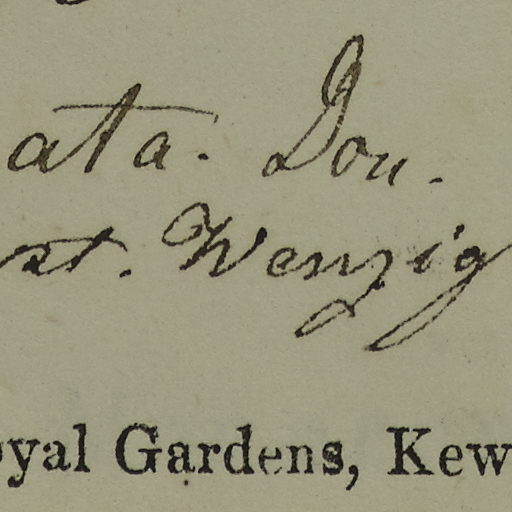 ata. Don.
st. Wenzig
oyal Gardens, Kew